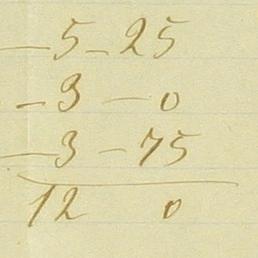 — 5 – 25
– 3 — 0
— 3 – 75
12 0